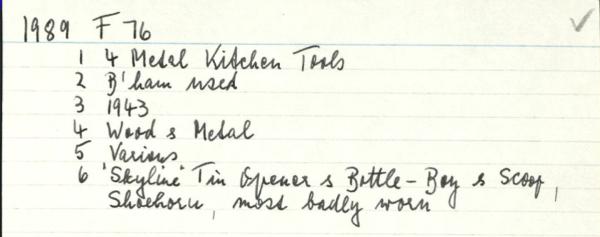 1989 F 76
1 4 Metal Kitchen Tools
2 B'ham used
3 1943
4 Wood & Metal
5 Various
6 'Skyline' Tin Opener & Bottle-Boy & Scoop,
Shoehorn, most badly worn